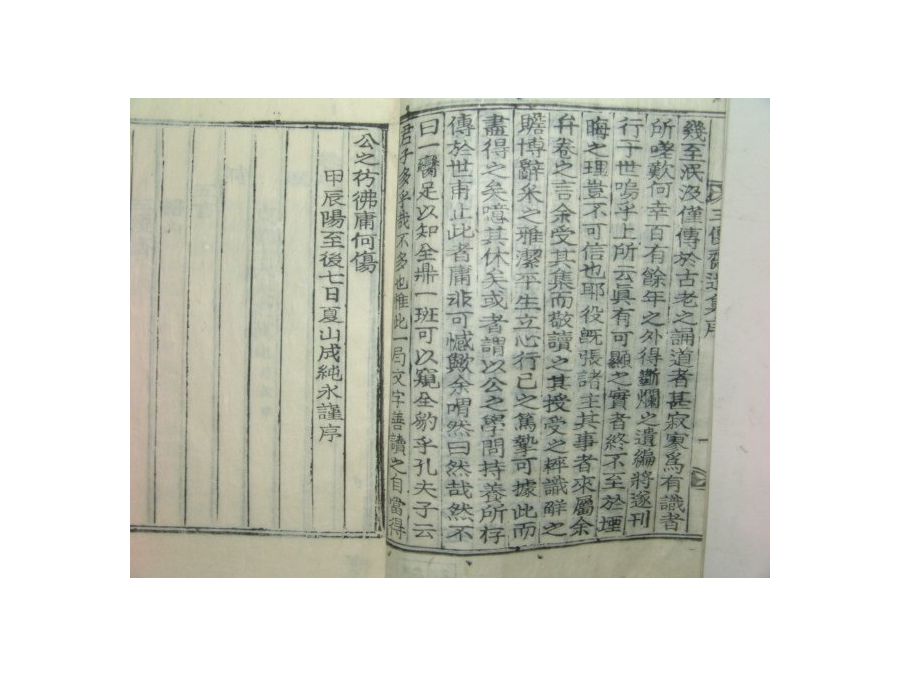 幾至泯沒僅傳於古老之誦道者甚寂寞爲有識者
所嗟歎何幸百有餘年之外得斷爛之遺編將遂刊
行于世嗚乎上所云眞有可顯之實者終不至於堙
晦之理豈不可信也耶役旣張諸主其事者來屬余
弁卷之言余受其集而敬讀之其授受之 識解之
贍博辭采之雅潔平生立心行己之篤摯可據此而
盡得之矣噫其休矣或者謂以公之學問持養所存
傳於世甫止此者庸非可憾歟余喟然曰然哉然不
曰一臠足以知全鼎一班可以窺全豹乎孔夫子云
君子多乎哉不多也惟此一局文字善讀之自當得
公之彷彿庸何傷
甲辰陽至後七日夏山成純永謹序